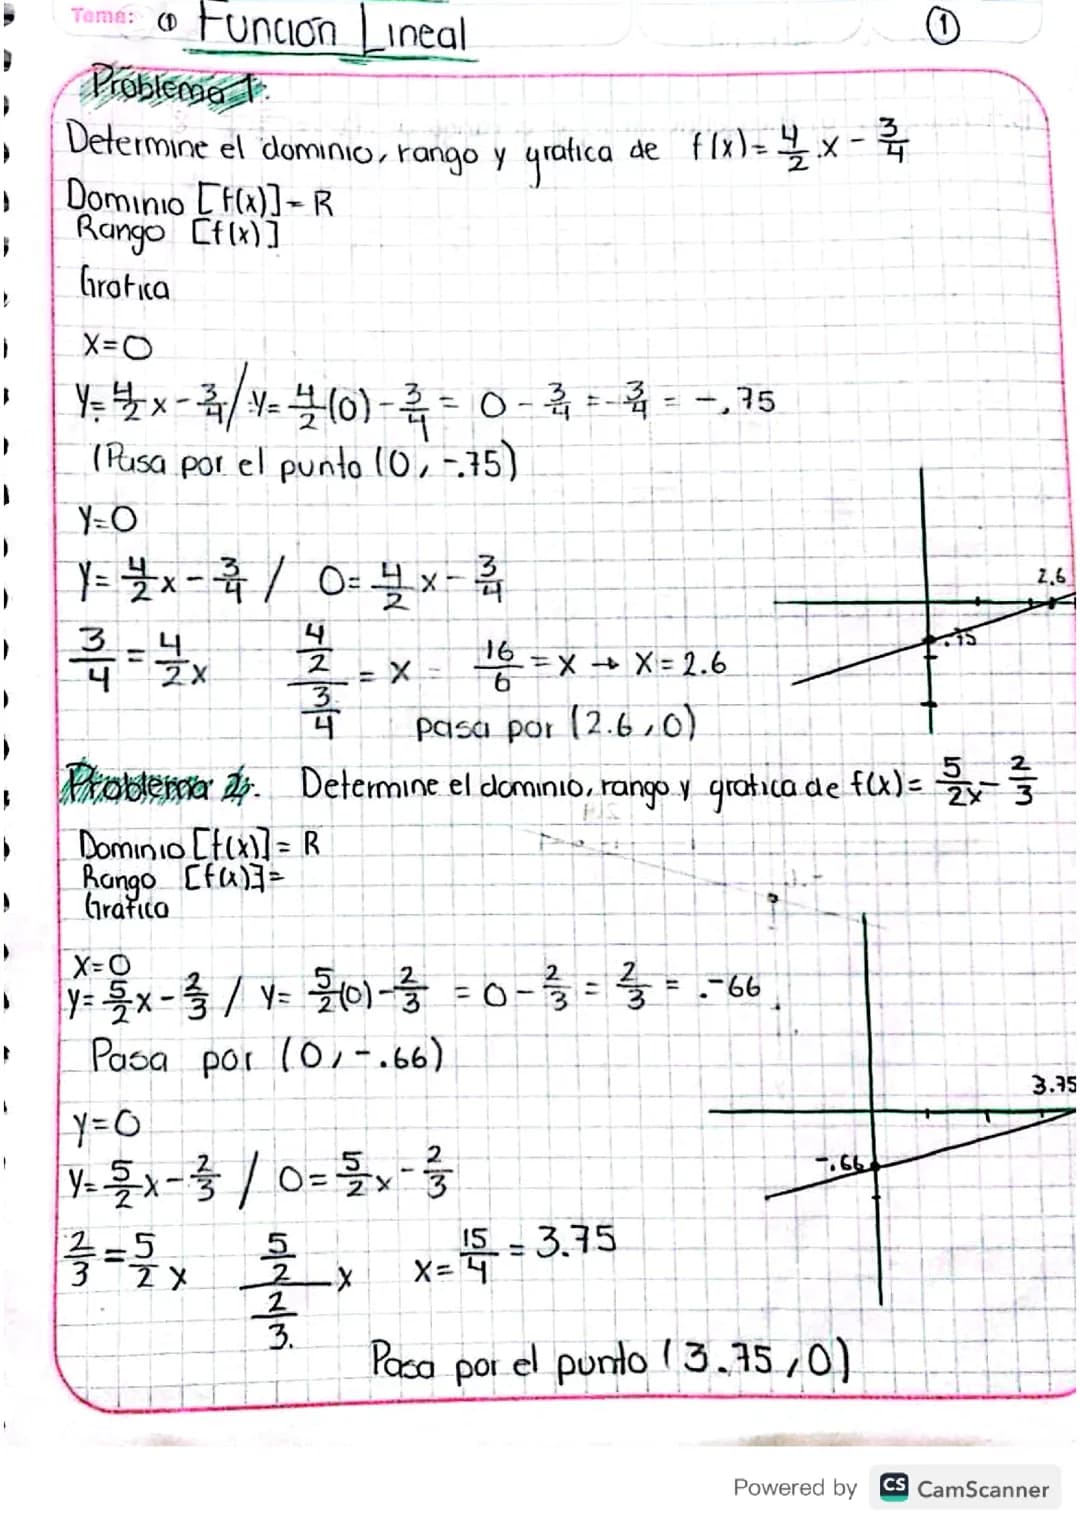 Tema: ① Función Lineal ①
Problema 1:
Determine el dominio, rango y grafica de f(x)= 4/2 x - 3/4
Dominio [f(x)] = R
Rango [f(x)]
Grafica
X=0
y= 4/2 x - 3/4 / y= 4/2 (0) - 3/4 = 0 - 3/4 = - 3/4 = -.75
(Pasa por el punto (0, -.75)
y=0
y= 4/2 x - 3/4 / 0= 4/2 x - 3/4
2.6
.75
3/4 = 4/2 x (4/2)/(3/4) = x - 16/6 = x → x=2.6
pasa por (2.6, 0)
Problema 2: Determine el dominio, rango y grafica de f(x)= 5/2x - 2/3
Dominio [f(x)] = R
Rango [f(x)] =
Grafica
X=0
y= 5/2 x - 2/3 / y= 5/2 (0) - 2/3 = 0 - 2/3 = 2/3 = .-66
Pasa por (0, -.66)
3.75
y=0
-.66
y= 5/2 x - 2/3 / 0= 5/2 x - 2/3
2/3 = 5/2 x (5/2)/(2/3.) x x= 15/4 = 3.75
Pasa por el punto (3.75, 0)
Powered by CS CamScanner